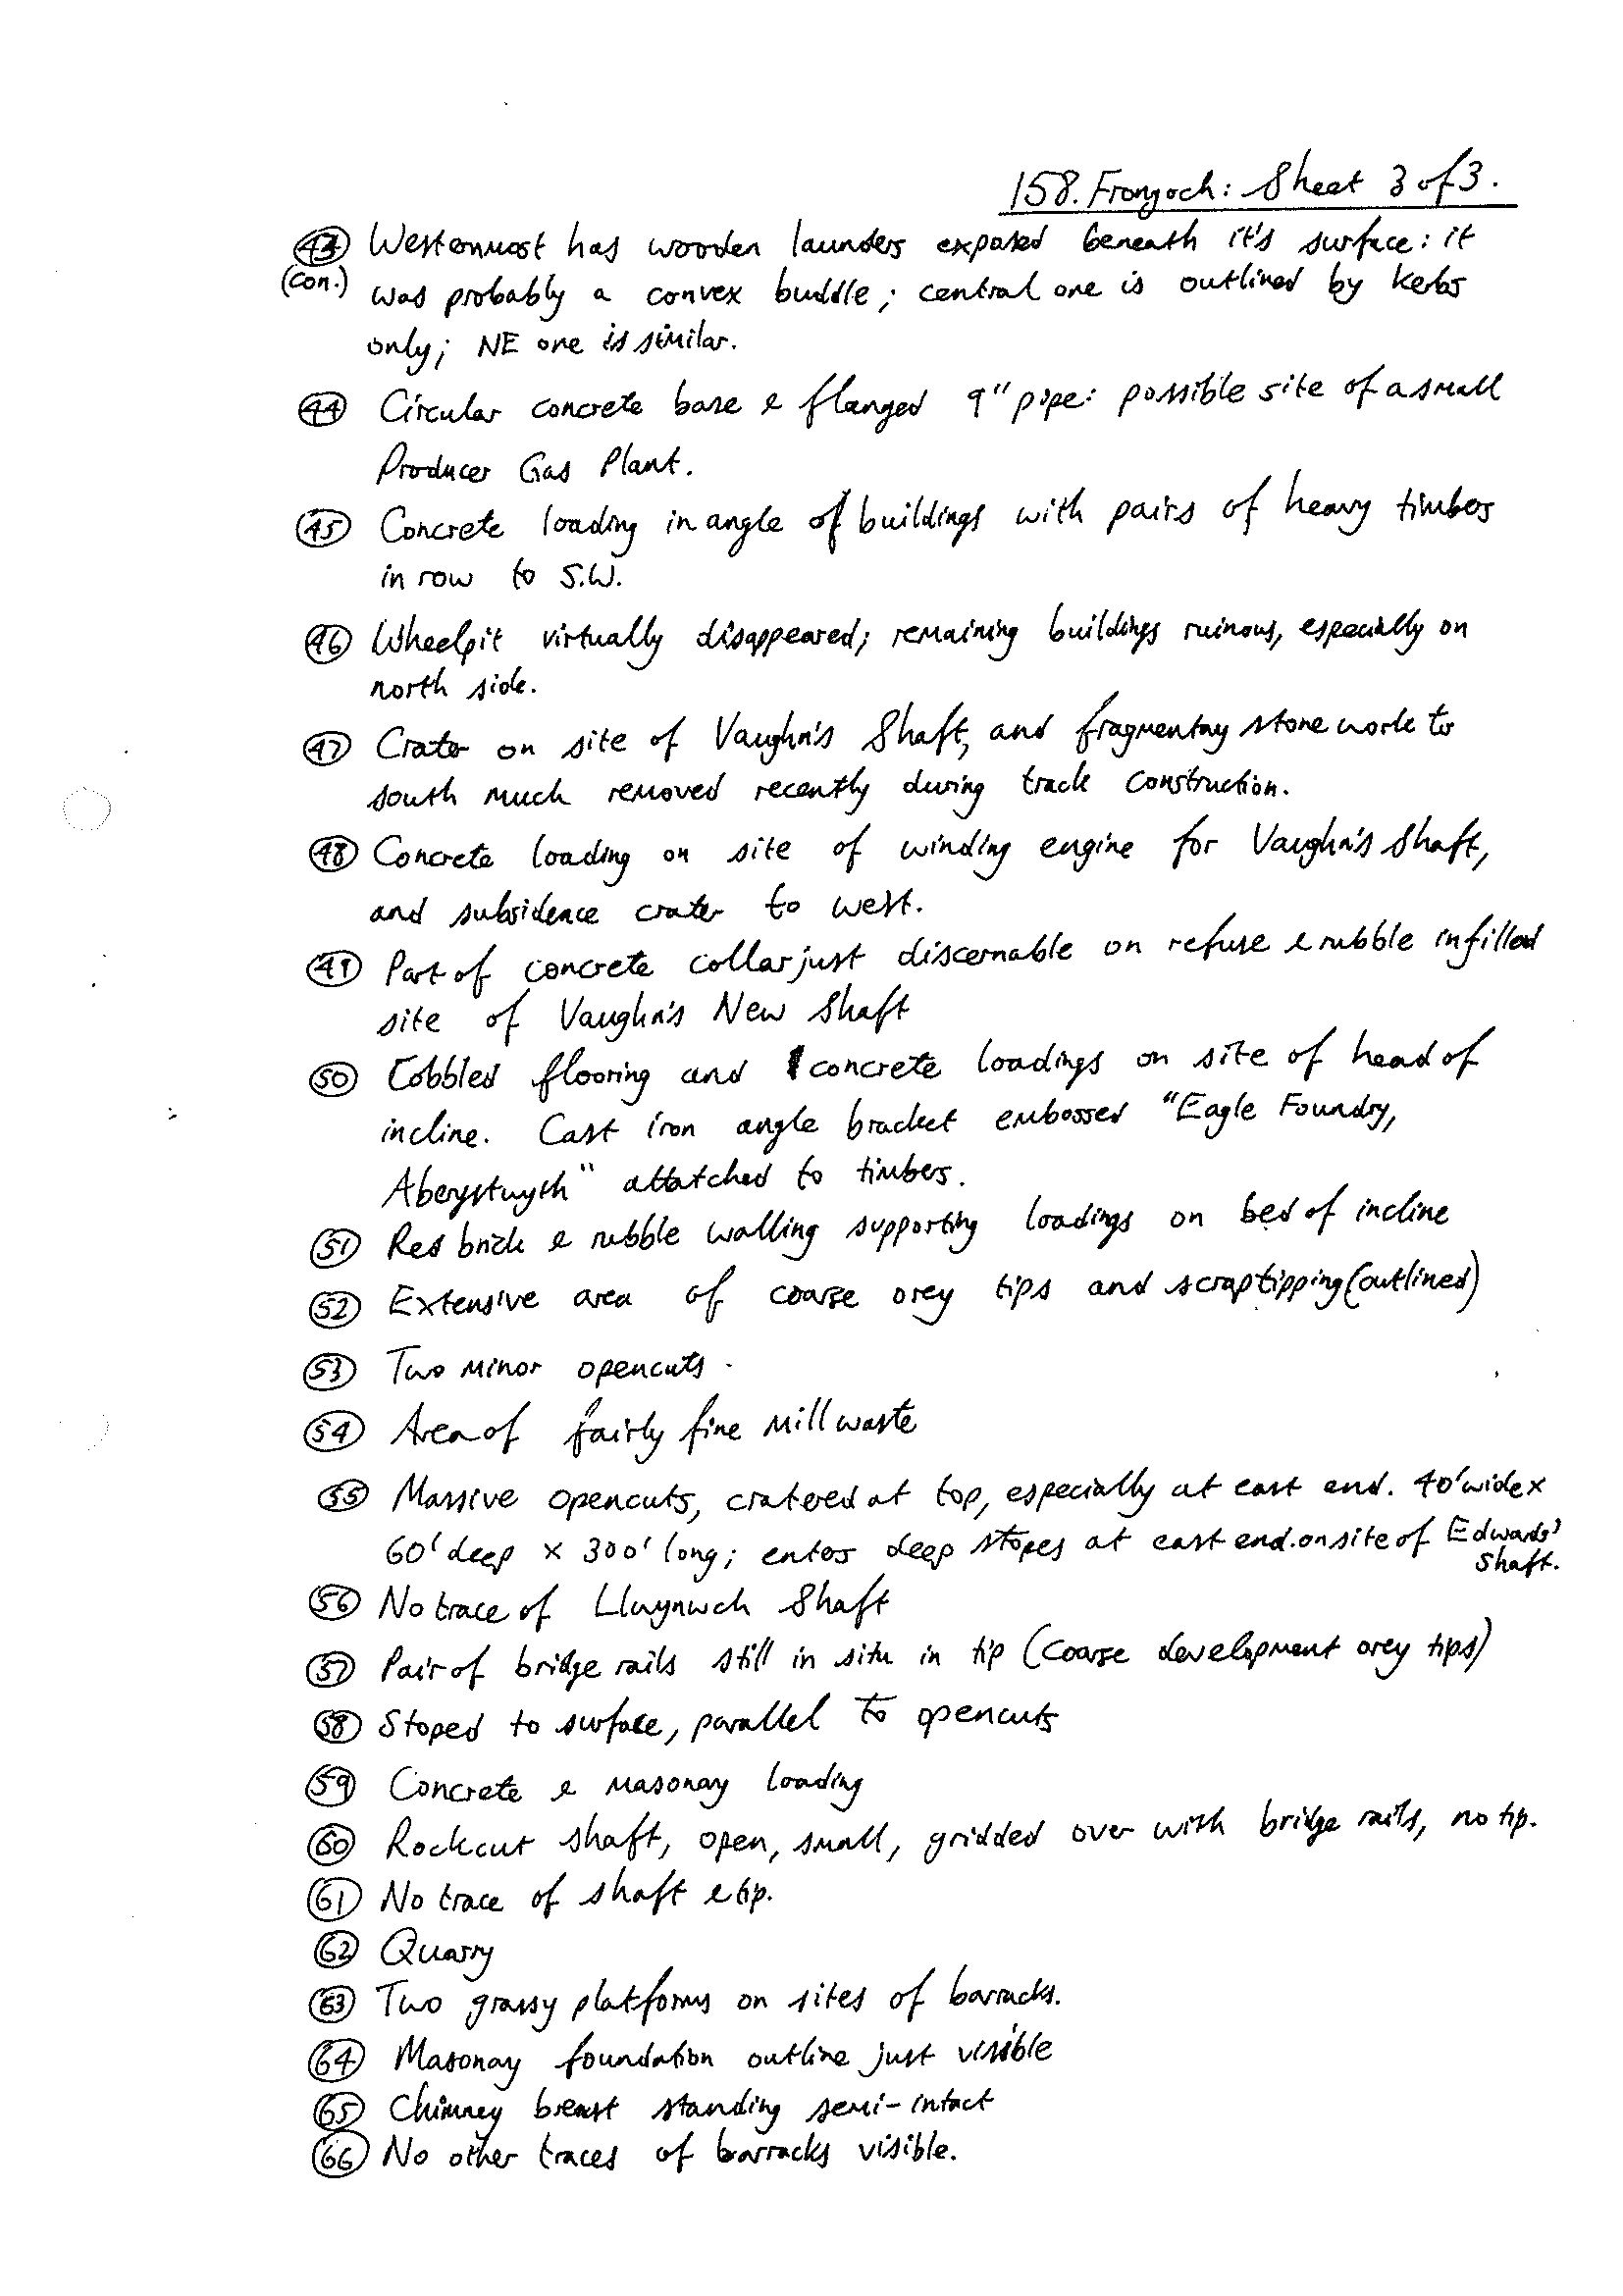 158. Frongoch: Sheet 3 of 3.
43 Westernmost has wooden launders exposed beneath it's surface: it
(con.) was probably a convex buddle; central one is outlined by kerbs
only; NE one is similar.
44 Circular concrete base & flanged 9" pipe: possible site of a small
Producer Gas Plant.
45 Concrete loading in angle of buildings with pairs of heavy timbers
in row to S.W.
46 Wheelpit virtually disappeared; remaining buildings ruinous, especially on
north side.
47 Crater on site of Vaughn's Shaft, and fragmentary stonework to
south much removed recently during track construction.
48 Concrete loading on site of winding engine for Vaughn's Shaft,
and subsidence crater to west.
49 Part of concrete collar just discernable on refuse & rubble infilled
site of Vaughn's New Shaft
50 Cobbled flooring and concrete loadings on site of head of
incline. Cast iron angle bracket embossed "Eagle Foundry,
Aberystwyth" attatched to timbers.
51 Red brick & rubble walling supporting loadings on bed of incline
52 Extensive area of coarse orey tips and scraptipping (outlined)
53 Two minor opencuts.
54 Area of fairly fine mill waste
55 Massive opencuts, cratered at top, especially at east end. 40' wide x
60' deep x 300' long; enters deep stopes at east end. on site of Edwards'
Shaft.
56 No trace of Llwynwch Shaft
57 Pair of bridge rails still in situ in tip (coarse development orey tips)
58 Stoped to surface, parallel to opencuts
59 Concrete & masonry loading
60 Rockcut shaft, open, small, gridded over with bridge rails, no tip.
61 No trace of shaft & tip.
62 Quarry
63 Two grassy platforms on sites of barracks.
64 Masonry foundation outline just visible
65 Chimney breast standing semi-intact
66 No other traces of barracks visible.